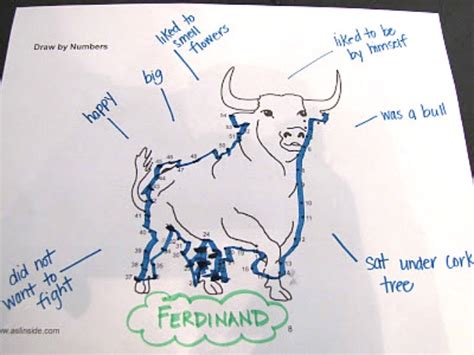 Draw by Numbers
liked to
smell
flowers
liked to be
by himself
big
happy
was a bull
did not
want to
fight
sat under cork
tree
FERDINAND
8
www.aslinside.com